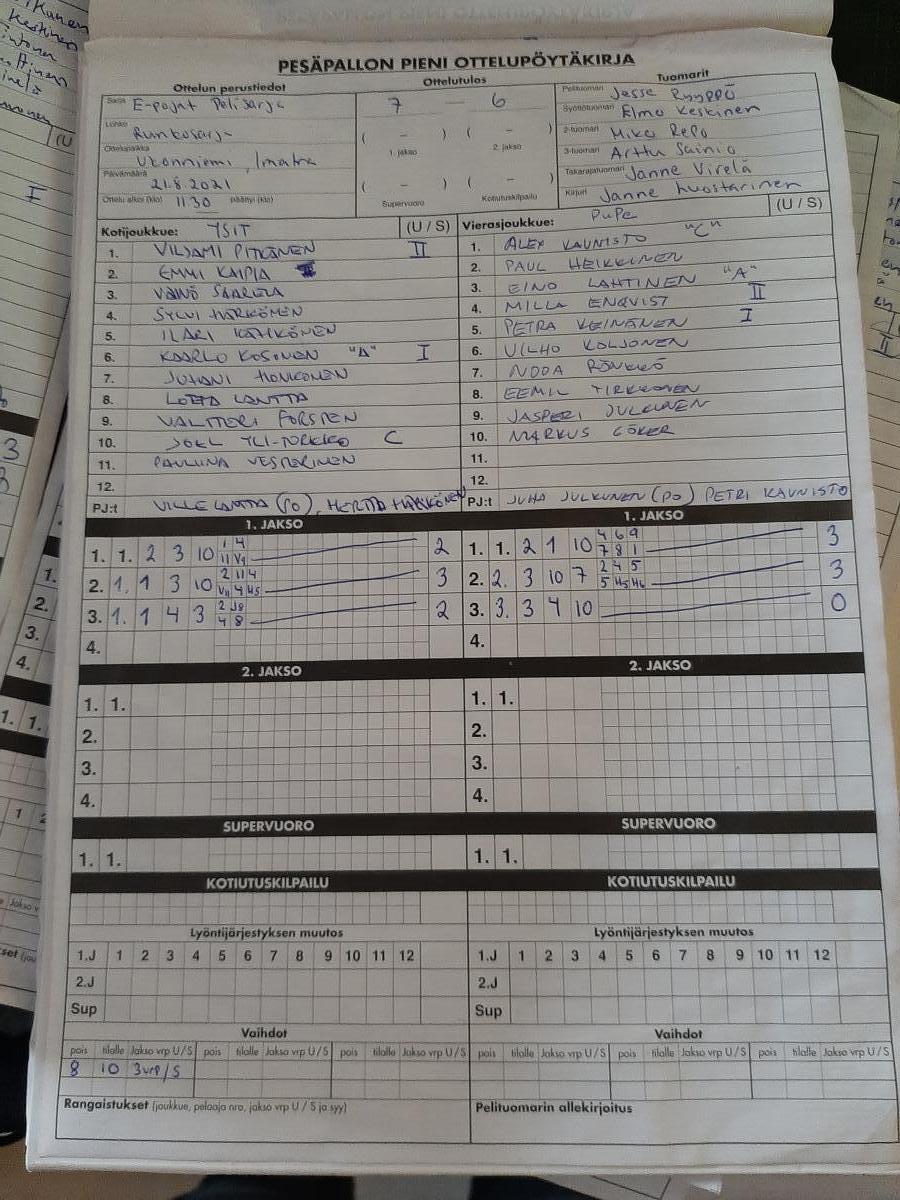 PESÄPALLON PIENI OTTELUPÖYTÄKIRJA
Ottelun perustiedot
Sarja E-pojat Pelisarja
Lohko Runkosarj-
Ottelupaikka Ukonniemi, Imatra
Päivämäärä 21.8.2021
Ottelu alkoi (klo) 1130 päättyi (klo)
Ottelutulos
7 - 6
( - ) ( - )
1. jakso 2. jakso
( - ) ( - )
Supervuoro Kotiutuskilpailu
Tuomarit
Pelituomari Jesse Ryyppö
Syöttötuomari Elmo Keskinen
2-tuomari Miko Repo
3-tuomari Arttu Sainio
Takarajatuomari Janne Virelä
Kirjuri Janne Luostarinen
Kotijoukkue: YSIT (U / S)
1. VILJAMI PITKÄNEN II
2. EMMI KAIPIA
3. VÄINÖ SAARELA
4. SYLVI HÄRKÖNEN
5. ILARI KÄHKÖNEN
6. KAARLO KOSONEN "A" I
7. JUHANI HONKONEN
8. LOTTA LANTTA
9. VALTTERI FORSTEN
10. JOEL YLI-TORKKO C
11. PAULIINA VESTERINEN
12.
PJ:t VILLE LANTTA (PO), HERTTA HÄRKÖNEN
Vierasjoukkue: PuPe (U / S)
1. ALEX KAUNISTO "C"
2. PAUL HEIKKINEN
3. EINO LAHTINEN "A"
4. MILLA ENQVIST II
5. PETRA KEINÄNEN I
6. VILHO KOLJONEN
7. NOOA RÖNKKÖ
8. EEMIL TIRKKONEN
9. JASPERI JULKUNEN
10. MARKUS CÖKER
11.
12.
PJ:t JUHA JULKUNEN (PO) PETRI KAUNISTO
1. JAKSO
1. 1. 2 3 10 1 4 2
11 V9
2. 1. 1 3 10 2 11 4 3
V11 4 H5
3. 1. 1 4 3 2 J8 2
4 8
4.
1. JAKSO
1. 1. 2 1 10 4 6 9 3
7 8 1
2. 2. 3 10 7 2 4 5 3
5 H5 H6
3. 3. 3 4 10 0
4.
2. JAKSO
1. 1.
2.
3.
4.
2. JAKSO
1. 1.
2.
3.
4.
SUPERVUORO
1. 1.
SUPERVUORO
1. 1.
KOTIUTUSKILPAILU
KOTIUTUSKILPAILU
Lyöntijärjestyksen muutos
1.J 1 2 3 4 5 6 7 8 9 10 11 12
2.J
Sup
Lyöntijärjestyksen muutos
1.J 1 2 3 4 5 6 7 8 9 10 11 12
2.J
Sup
Vaihdot
pois tilalle Jakso vrp U/S pois tilalle Jakso vrp U/S pois tilalle Jakso vrp U/S
8 10 3vrp/S
Vaihdot
pois tilalle Jakso vrp U/S pois tilalle Jakso vrp U/S pois tilalle Jakso vrp U/S
Rangaistukset (joukkue, pelaaja nro, jakso vrp U / S ja syy)
Pelituomarin allekirjoitus